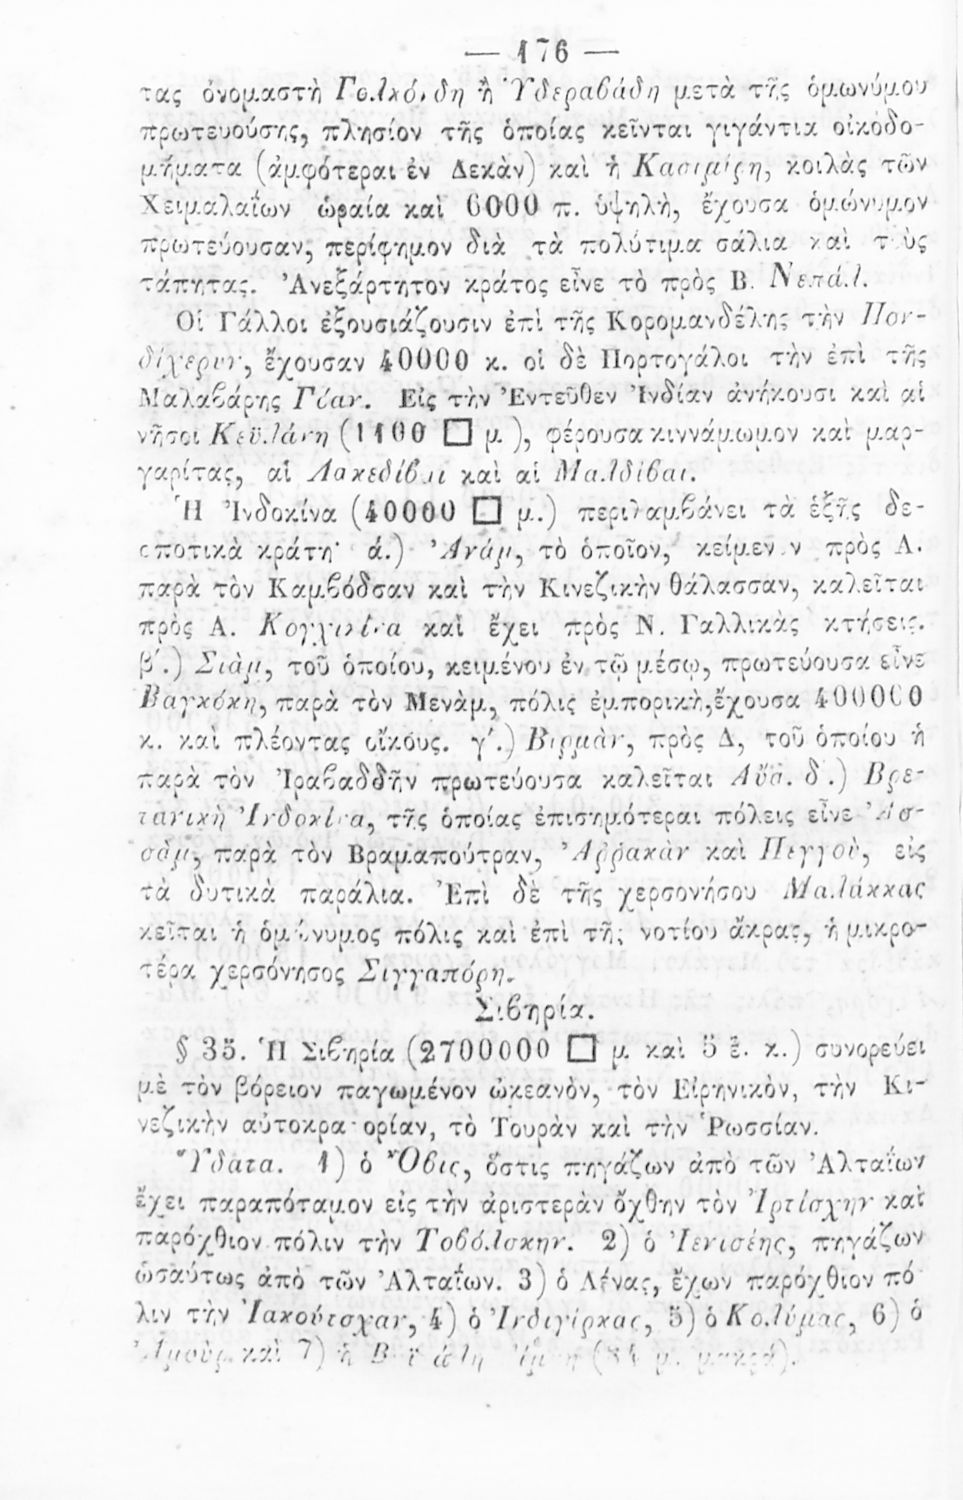 — 176 —
τας ὀνομαστὴ Γολκόνδη ἢ Ὑδεραβάδη μετὰ τῆς ὁμωνύμου
πρωτευούσης, πλησίον τῆς ὁποίας κεῖνται γιγάντια οἰκοδο-
μήματα (ἀμφότεραι ἐν Δεκὰν) καὶ ἡ Κασιμίρη, κοιλὰς τῶν
Χειμαλαΐων ὡραία καὶ 6000 π. ὑψηλὴ, ἔχουσα ὁμώνυμον
πρωτεύουσαν, περίφημον διὰ τὰ πολύτιμα σάλια καὶ τοὺς
τάπητας. Ἀνεξάρτητον κράτος εἶνε τὸ πρὸς Β. Νεπάλ.
Οἱ Γάλλοι ἐξουσιάζουσιν ἐπὶ τῆς Κορομανδέλης τὴν Πον-
δίχερυν, ἔχουσαν 40000 κ. οἱ δὲ Πορτογάλοι τὴν ἐπὶ τῆς
Μαλαβάρης Γόαν. Εἰς τὴν Ἐντεῦθεν Ἰνδίαν ἀνήκουσι καὶ αἱ
νῆσοι Κεϋλάνη (1100 □ μ.), φέρουσα κιννάμωμον καὶ μαρ-
γαρίτας, αἱ Λακεδίβαι καὶ αἱ Μαλδίβαι.
Ἡ Ἰνδοκίνα (40000 □ μ.) περιλαμβάνει τὰ ἑξῆς δε-
σποτικὰ κράτη· ά.) Ἀνάμ, τὸ ὁποῖον, κείμενον πρὸς Α.
παρὰ τὸν Καμβόδσαν καὶ τὴν Κινεζικὴν θάλασσαν, καλεῖται
πρὸς Α. Κογχινίνα καὶ ἔχει πρὸς Ν. Γαλλικὰς κτήσεις.
β΄.) Σιὰμ, τοῦ ὁποίου, κειμένου ἐν τῷ μέσῳ, πρωτεύουσα εἶνε
Βαγκόκη, παρὰ τὸν Μενὰμ, πόλις ἐμπορικὴ, ἔχουσα 400000
κ. καὶ πλέοντας οἴκους. γ΄.) Βιρμὰν, πρὸς Δ, τοῦ ὁποίου ἡ
παρὰ τὸν Ἰραβαδδῆν πρωτεύουσα καλεῖται Αὔα. δ΄.) Βρε-
τανικὴ Ἰνδοκίνα, τῆς ὁποίας ἐπισημότεραι πόλεις εἶνε Ἀσ-
σὰμ, παρὰ τὸν Βραμαπούτραν, Ἀῤῥακὰν καὶ Πεγγοὺ, εἰς
τὰ δυτικὰ παράλια. Ἐπὶ δὲ τῆς χερσονήσου Μαλάκκας
κεῖται ἡ ὁμώνυμος πόλις καὶ ἐπὶ τῆς νοτίου ἄκρας, ἡ μικρο-
τέρα χερσόνησος Σιγγαπόρη.
Σιβηρία.
§ 35. Ἡ Σιβηρία (2700000 □ μ. καὶ 5 ἑ. κ.) συνορεύει
μὲ τὸν βόρειον παγωμένον ὠκεανὸν, τὸν Εἰρηνικὸν, τὴν Κι-
νεζικὴν αὐτοκρατορίαν, τὸ Τουρὰν καὶ τὴν Ῥωσσίαν.
Ὕδατα. 1) ὁ Ὄβις, ὅστις πηγάζων ἀπὸ τῶν Ἀλταΐων
ἔχει παραπόταμον εἰς τὴν ἀριστερὰν ὄχθην τὸν Ἰρτίσχην καὶ
παρόχθιον πόλιν τὴν Τοβόλσκην. 2) ὁ Ἰενισέης, πηγάζων
ὡσαύτως ἀπὸ τῶν Ἀλταΐων. 3) ὁ Λένας, ἔχων παρόχθιον πό-
λιν τὴν Ἰακούτσχαν, 4) ὁ Ἰνδιγίρκας, 5) ὁ Κολύμας, 6) ὁ
Ἀμοὺρ καὶ 7) ἡ μ. μακρά).